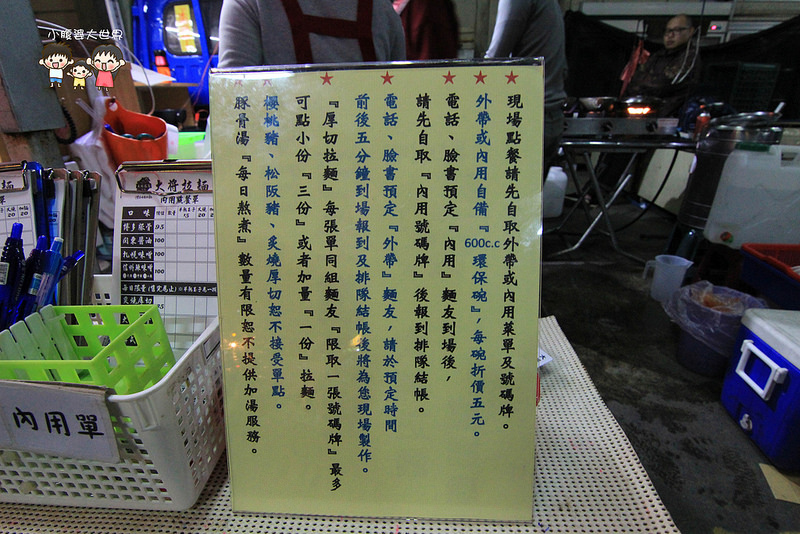 小腹婆大世界
★現場點餐請先自取外帶或內用菜單及號碼牌。
★外帶或內用自備『600c.c環保碗』，每碗折價五元。
★電話、臉書預定『內用』麵友到場後，
請先自取『內用號碼牌』後報到排隊結帳。
★電話、臉書預定『外帶』麵友，請於預定時間
前後五分鐘到場報到及排隊結帳後將為您現場製作。
★『厚切拉麵』每張單同組麵友『限取一張號碼牌』最多
可點小份『三份』或者加量『一份』拉麵。
★櫻桃豬、松阪豬、炙燒厚切恕不接受單點。
★豚骨湯『每日熬煮』數量有限恕不提供加湯服務。
大將拉麵
內用點餐單
口味
博多豚骨 95
關東醬油
札幌味噌
每日限量(售完為止)
炙燒厚切
內用單